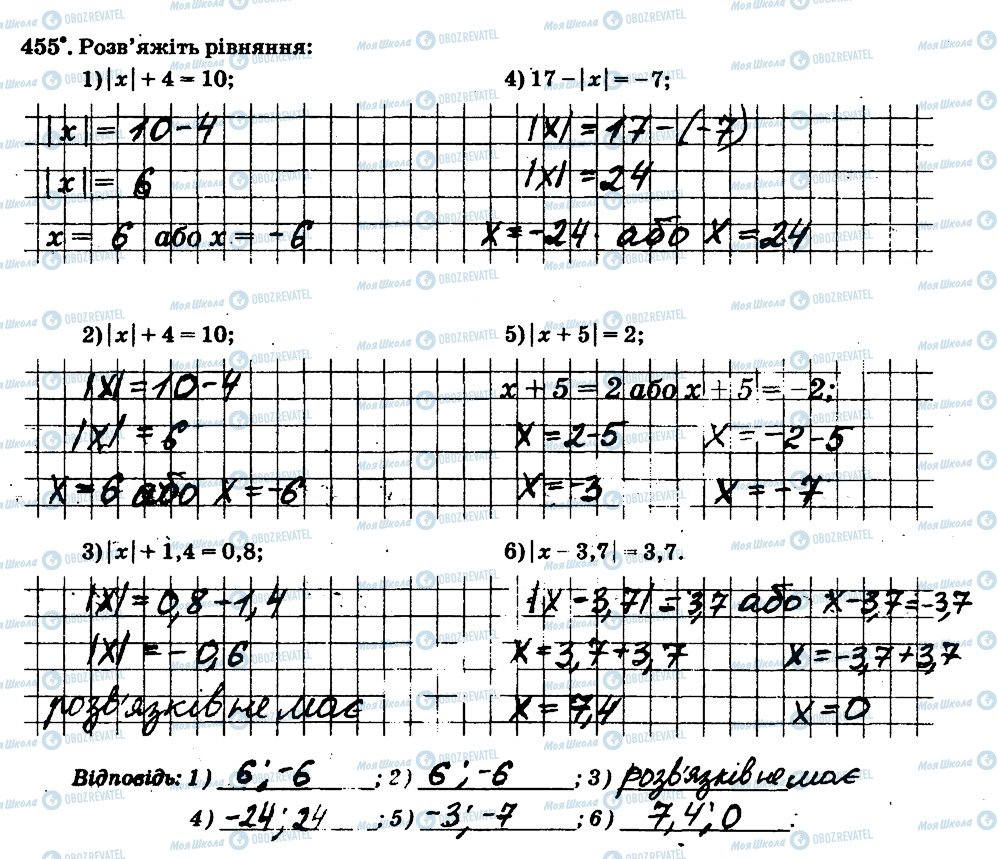 455°. Розв'яжіть рівняння:
1) |x| + 4 = 10;
|x| = 10 - 4
|x| = 6
x = 6 або x = -6
4) 17 - |x| = -7;
|x| = 17 - (-7)
|x| = 24
x = -24 або x = 24
2) |x| + 4 = 10;
|x| = 10 - 4
|x| = 6
x = 6 або x = -6
5) |x + 5| = 2;
x + 5 = 2 або x + 5 = -2;
x = 2 - 5 x = -2 - 5
x = -3 x = -7
3) |x| + 1,4 = 0,8;
|x| = 0,8 - 1,4
|x| = -0,6
розв'язків не має
6) |x - 3,7| = 3,7.
|x - 3,7| = 3,7 або x - 3,7 = -3,7
x = 3,7 + 3,7 x = -3,7 + 3,7
x = 7,4 x = 0
Відповідь: 1) 6; -6; 2) 6; -6; 3) розв'язків не має
4) -24; 24; 5) -3; -7; 6) 7,4; 0.
Моя Школа OBOZREVATEL